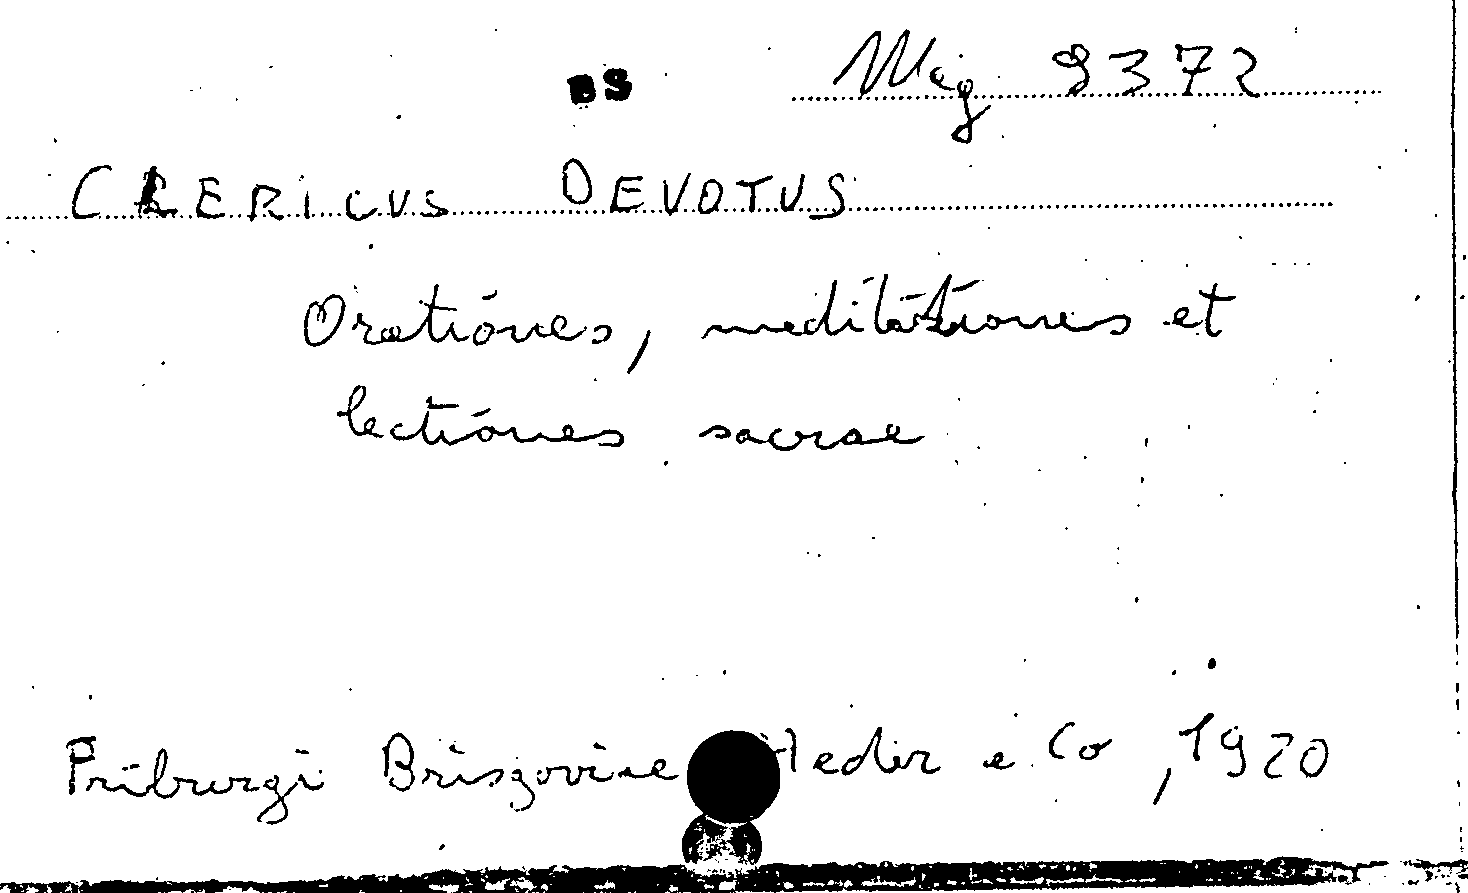 BS
Mag 9372
CLERICUS DEVOTUS
Orationes, meditationes et
lectiones sacrae
Friburgi Brisgoviae Heder e Co, 1920